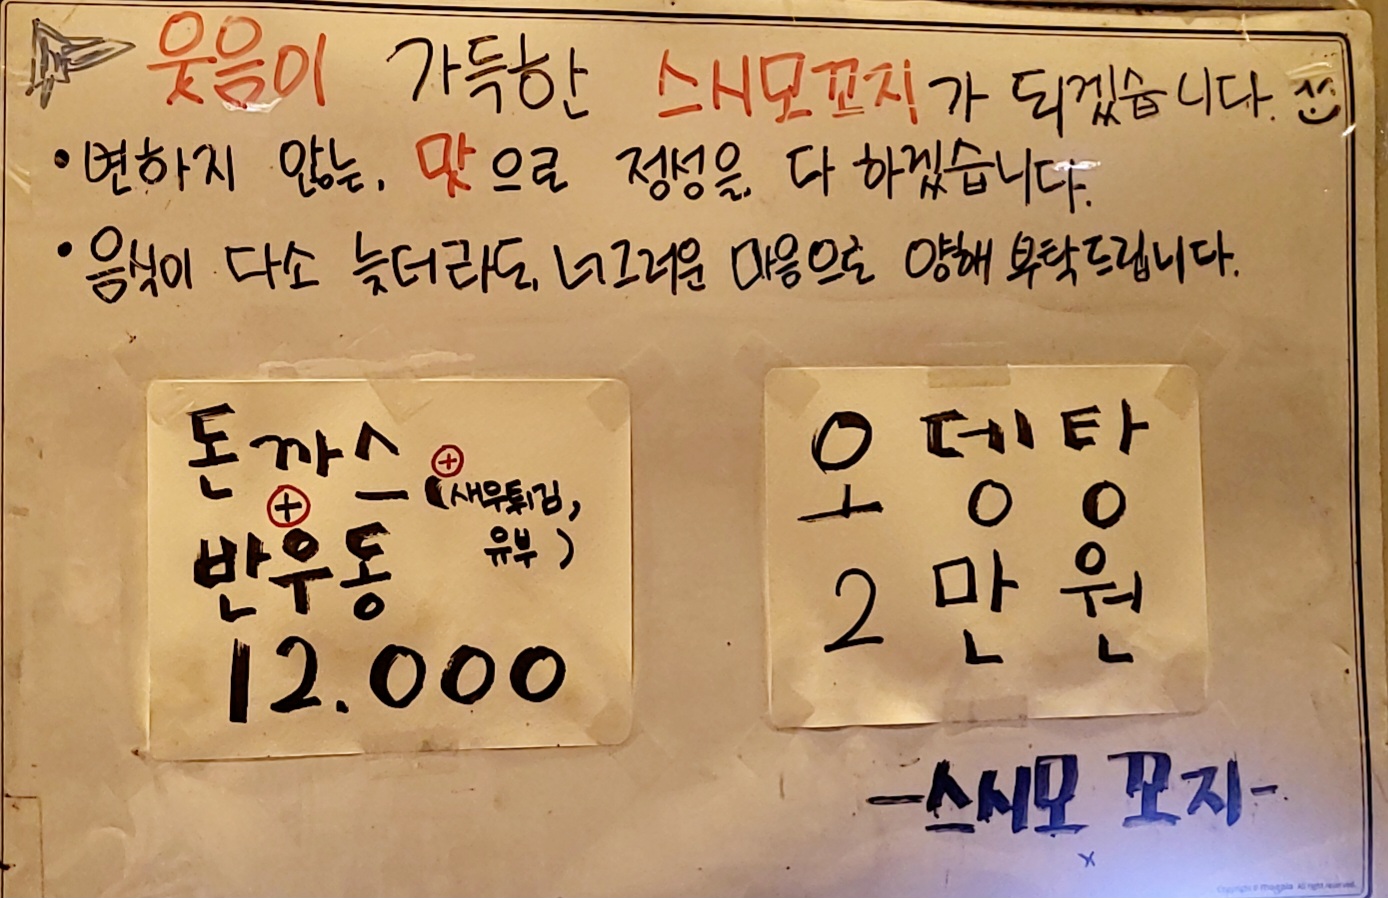 웃음이 가득한 스시모꼬지가 되겠습니다.
• 변하지 않는, 맛으로 정성을 다 하겠습니다.
• 음식이 다소 늦더라도, 너그러운 마음으로 양해 부탁드립니다.
돈까스 ⊕ (새우튀김,
유부)
⊕
반우동
12.000
오뎅탕
2만원
-스시모 꼬지-
x